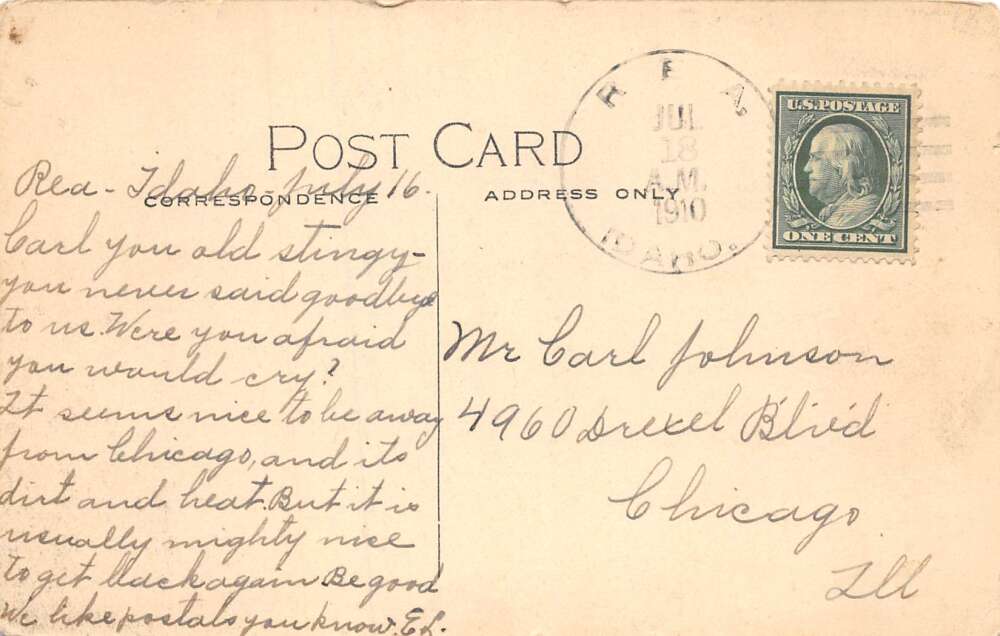 POST CARD
CORRESPONDENCE
ADDRESS ONLY
REA,
JUL
18
A.M.
1910
IDAHO.
U.S. POSTAGE
ONE CENT
Rea - Idaho - July 16.
Carl you old stingy -
you never said goodbye
to us. Were you afraid
you would cry?
It seems nice to be away
from Chicago, and its
dirt and heat. But it is
usually mighty nice
to get back again Be good
We like postals you know. EL.
Mr Carl Johnson
4960 Drexel Blv'd
Chicago
Ill